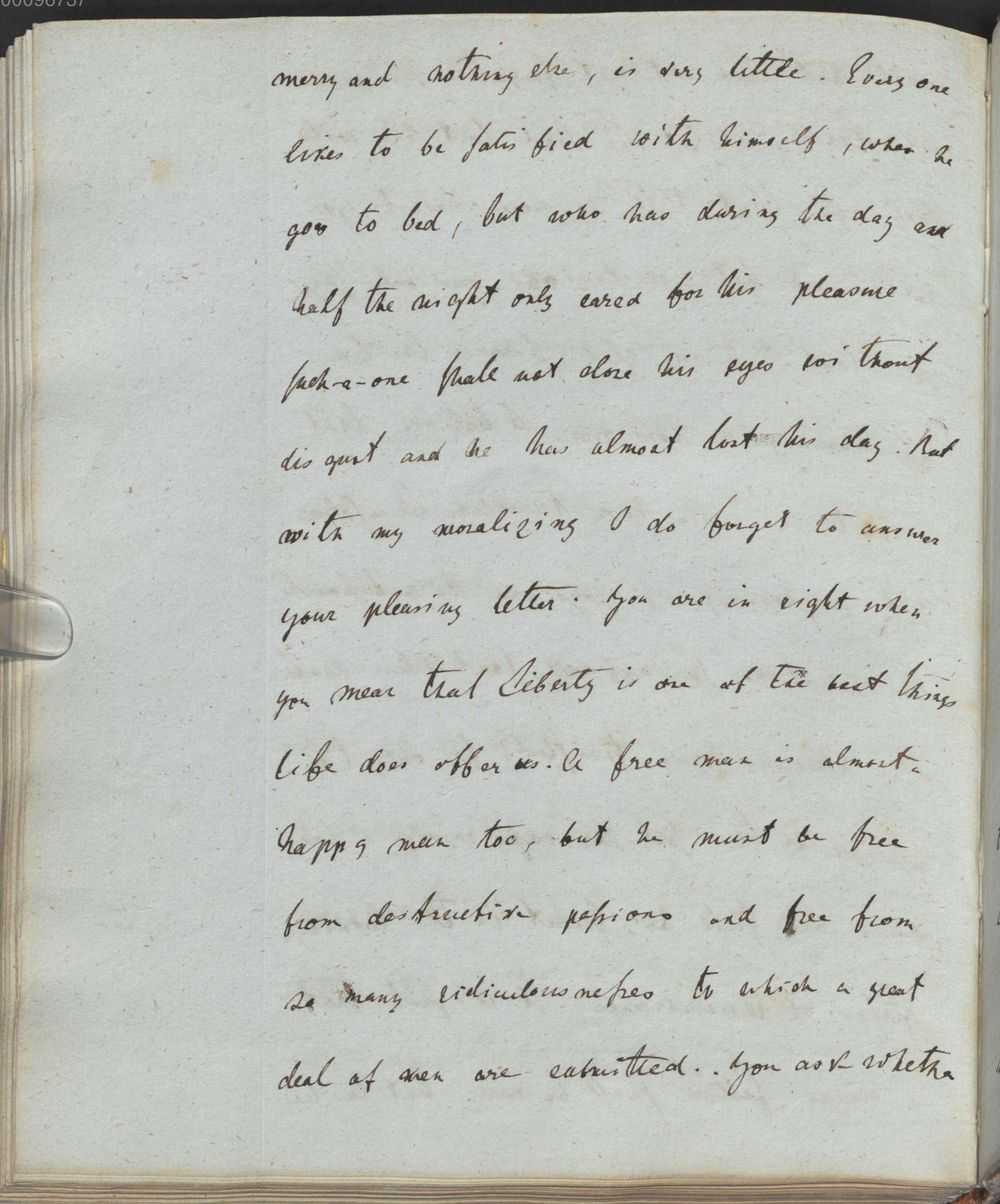 00096737
merry and nothing else, is very little. Every one
likes to be satisfied with himself, when he
goes to bed, but who has during the day and
half the night only cared for his pleasure
such-a-one shall not close his eyes without
disgust and he has almost lost his day. But
with my moralizing I do forget to answer
your pleasing letter. You are in right when
you mean that Liberty is one of the best things
life does offer us. A free man is almost a
happy man too, but he must be free
from destructive passions and free from
so many ridiculousnesses to which a great
deal of men are submitted.. You ask whether